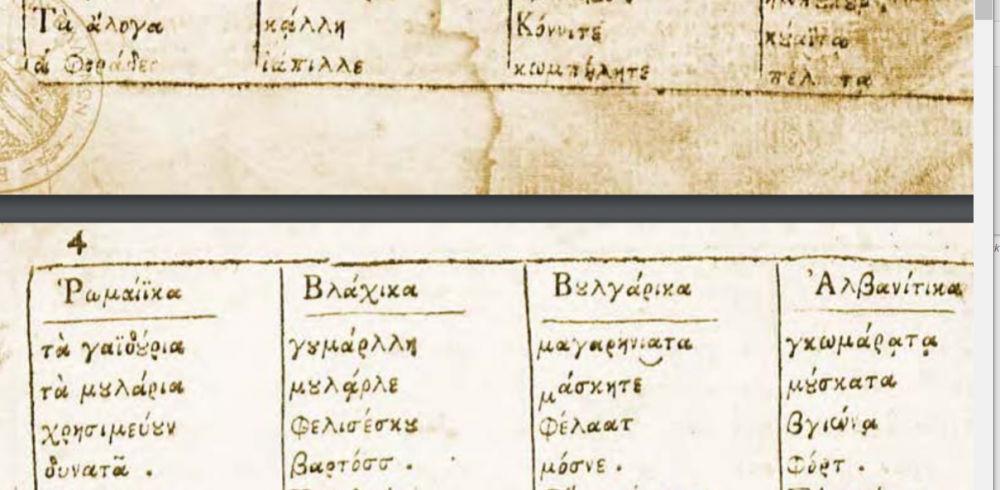 Τὰ ἄλογα κάλλη Κόννιτε κꙋαῗτα
ἁ Φοράδες ἰάπιλλε κωμπήλητε πέλ τα
4
Ῥωμαίϊκα Βλάχικα Βȣλγάρικα Ἀλβανίτικα
τὰ γαϊδȣ́ρια γȣμάρλλη μαγαρηνιατα γκωμάρατα
τὰ μȣλάρια μȣλάρλε μάσκητε μȣ́σκατα
χρησιμεύȣν Φελισέσκȣ Φέλαατ βγιώνα
δυνατᾶ . βαρτόσσ . μόσνε . Φόρτ .